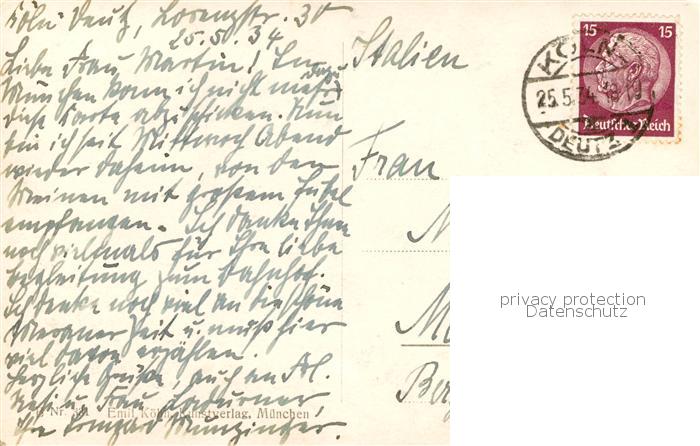 Köln Deutz, Lorenzstr. 30
25.5.34
Liebe Frau Martin! In
München kam ich nicht mehr dazu
diese Karte abzuschicken. Nun
bin ich seit Mittwoch Abend
wieder daheim, von den
Meinen mit großem Jubel
empfangen. Ich danke Ihnen
noch vielmals für Ihre liebe
Begleitung zum Bahnhof.
Ich denke noch viel an die schöne
Meraner Zeit u. muß hier
viel davon erzählen.
Herzliche Grüße, auch an Frl.
Frau
Ihre Irmgard Munzinger.
Nr. Emil Köhn, Kunstverlag, München
Italien
Frau
M
M
Ber
15 15
Deutsches Reich
KÖLN
25.5.34
DEUTZ
privacy protection
Datenschutz